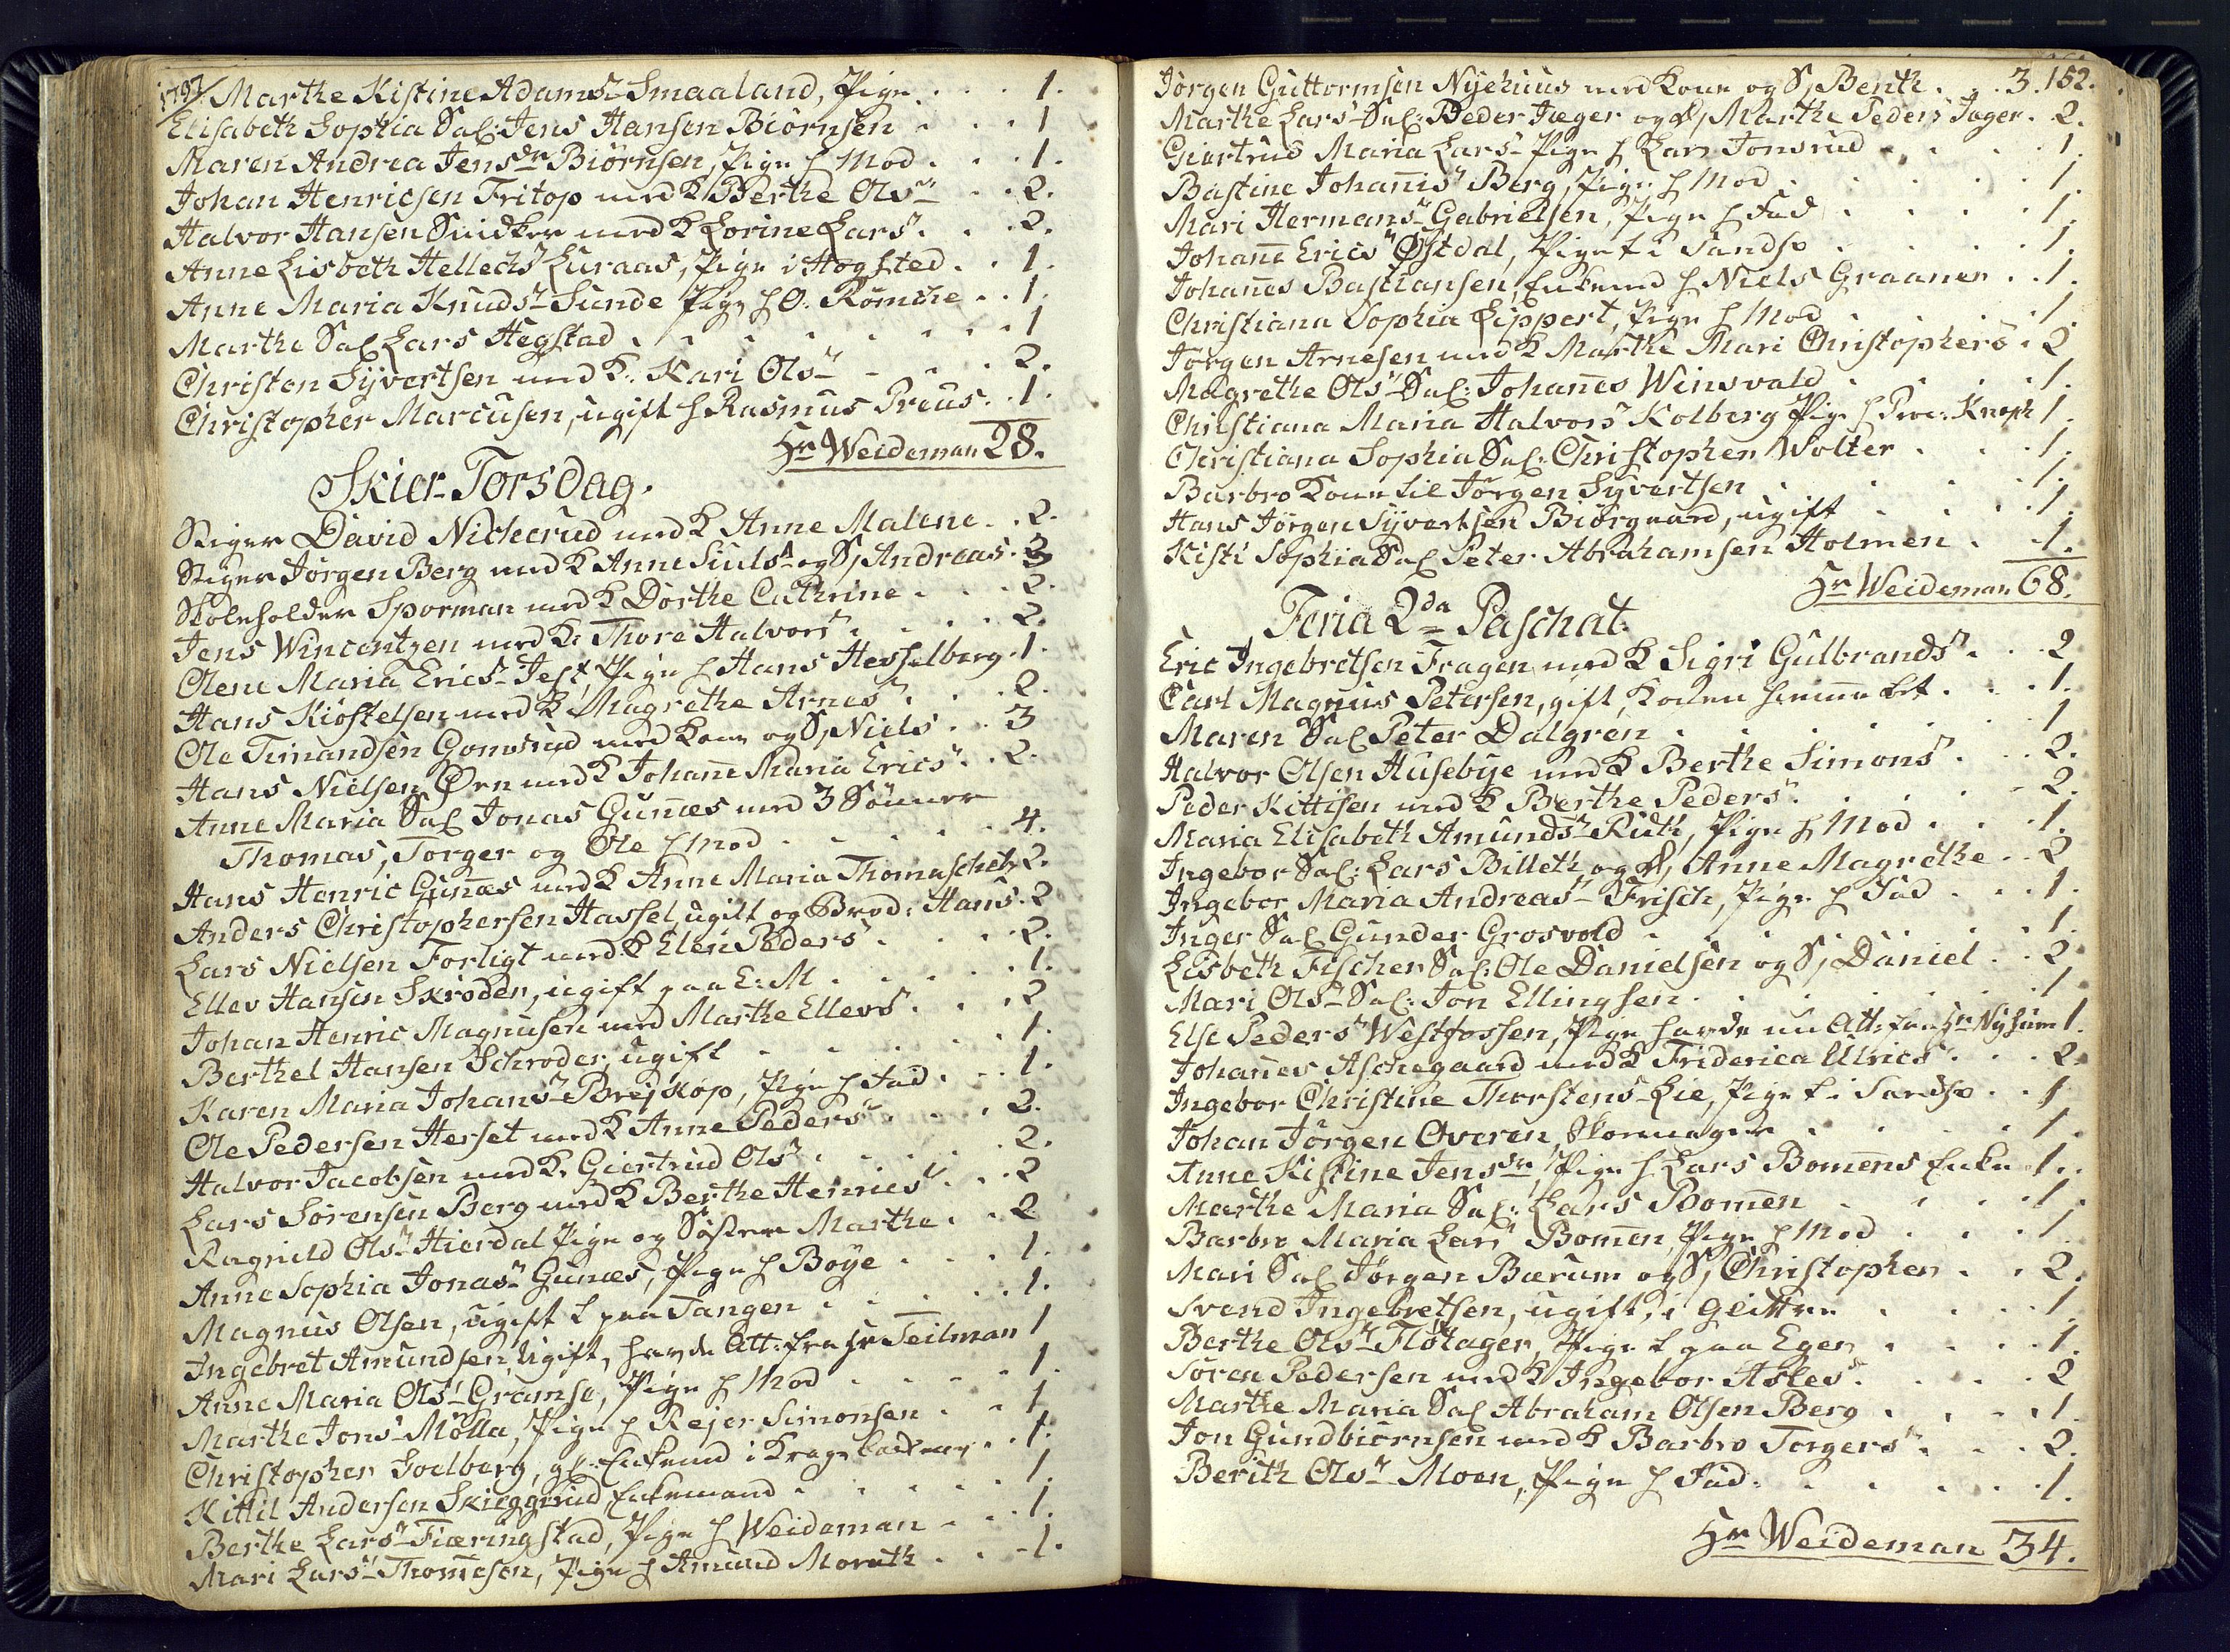 1797. Marthe Kistine Adams Smaaland, Pige . . . 1.
Elisabeth Sophia Sal: Jens Hansen Biørnsen . . . 1
Maren Andrea Jensdr Biørnsen, Pige h Mod . . . 1.
Johan Henricsen Fritop med K Berthe Ols . . 2.
Halvor Hansen Snidker med K Lorine Lars . . . 2.
Anne Lisbeth Hellechs Luraas, Pige i Hogsted . . 1.
Anne Maria Knuds Sunde Pige h O. Romche . . 1.
Marthe Sal Lars Hegstad . . . . . . 1
Christen Syvertsen med K: Kari Ols . . . 2.
Christopher Marcusen, ugift h Rasmus Preus . . 1.
Hr Weideman 28.
Skier-Torsdag.
Stiger David Nicherud med K Anne Malene . . 2.
Stiger Jørgen Berg med K Anne Siuls og S, Andreas . 3
Skoleholder Sporman med K Dorthe Cathrine . . . 2.
Jens Wincentzen med K: Thore Halvors . . . . 2.
Olene Maria Erics Jest, Pige h Hans Hesselberg . 1.
Hans Kiostelsen med K Magrethe Arnes . . . 2.
Ole Timandsen Gomsrud med Kone og S, Niels . . 3
Hans Nielsen Ørn med K Johane Maria Erics . . 2.
Anne Maria Sal Jonas Gunæs med 3 Sønner
Thomas, Torger og Ole h Mod . . . . . 4.
Hans Henric Gunæs med K Anne Maria Thomaschek 2.
Anders Christophersen Hassel, ugift og Brod: Hans . 2
Lars Nielsen Forligt med K Elen Peders . . . . 2.
Ellev Hansen Skroder, ugift paa E: M . . . . . 1.
Johan Henric Magnusen med Marthe Ellevs . . . 2
Berthel Hansen Schroder, ugift . . . . . 1.
Karen Maria Johans Brejskop, Pige h Fad . . . 1.
Ole Pedersen Herset med K Anne Peders . . . 2.
Halvor Jacobsen med K. Giertrud Ols . . . . . 2.
Lars Sørensen Berg med K Berthe Henrics . . . 2
Ragnild Ols Hierdal Pige og Søster Marthe . . 2
Anne Sophia Jonas Gunæs, Pige h Boye . . . . 1.
Magnus Olsen, ugift t paa Tangen . . . . . 1.
Ingebret Amundsen, Ugift, havde Att: fra Hr Teilman 1
Anne Maria Ols Gramse, Pige h Mod . . . . . 1.
Marthe Jons Mølla, Pige h Rejer Simonsen . . 1
Christopher Soelberg, gl. Enkemd i . . 1.
Kittil Andersen Skieggerud Enkemand . . . . 1
Berthe Lars Fiæringstad, Pige h Weideman . . . 1.
Mari Lars Thomesen, Pige h Amund Moruth . . . 1.
Jørgen Guttormsen Nyehuus med Kone og S, Benth . . . 3. 152.
Marthe Lars Sal: Peder Jæger og d, Marthe Peders Jæger . 2.
Giertrud Maria Lars Pige h Lars Tonsrud . . . . 1.
Bastine Johanis Berg, Pige h Mod . . . . . 1.
Mari Hermans Gabrielsen, Pige h Fad . . . . 1.
Johane Erics Østdal, Pige t i Sandsv . . . . 1.
Johanes Bastiansen, Enkemd h Niels Graaner . . 1.
Christiana Sophia Lippert, Pige h Mod . . . . 1.
Jørgen Arnesen med K Marthe Mari Christophers . 2
Magrethe Ols Sal: Johanes Winsvald . . . . 1.
Christiana Maria Halvors Kolberg Pige h Proc: Knoph 1.
Christiana Sophia Sal: Christopher Wolter . . . 1.
Barbro Kone til Jørgen Syvertsen . . . . . 1.
Hans Jørgen Syvertsen Biørgaard, ugift . . . . 1.
Kisti Sophia Sal Peter Abrahamsen Holmen . . . 1.
Hr Weideman 68.
Feria 2da Paschat:
Eric Ingebretsen Fragen med K Sigri Gulbrands . . . 2
Carl Magnus Petersen, gift, Konen . . . 1.
Maren Sal Peter Dalgren . . . . . . 1
Halvor Olsen Husebye med K Berthe Simons . . . 2.
Peder Kittisen med K Berthe Peders . . . . . 2.
Maria Elisabeth Amunds Ruth, Pige h Mod . . . 1.
Ingebor Sal: Lars Billeth og d, Anne Magrethe . . 2
Ingebor Maria Andreas Frisch, Pige h Fad . . . 1.
Inger Sal Gunder Grosvold . . . . . . 1.
Lisbeth Fischer Sal: Ole Danielsen og S, Daniel . . 2.
Mari Ols Sal: Jon Ellingsen . . . . . . 1.
Else Peders Westfossen, Pige havde nu Att: fra Hr Nyhuus 1.
Johannes Aschegaard med K Friderica Ulrics . . . 2.
Ingebor Christine Thorstens Lie, Pige t i Sandsv . . 1
Johan Jørgen Overen, Skomager . . . . . 1.
Anne Kistine Jensdr, Pige h Lars Bomens Enke 1.
Marthe Maria Sal: Lars Bomen . . . . 1.
Barbro Maria Lars Bomen, Pige h Mod . . . 1
Mari Sal Jørgen Bærum og S, Christopher . . 2.
Svend Ingebretsen, ugift, i Glitre . . . . 1.
Berthe Ols Flotager, Pige t paa Eger . . . . 1.
Søren Pedersen med K Ingebor Asles . . . . 2
Marthe Maria Sal Abraham Olsen Berg . . . . 1.
Jon Gundbiørnsen med K Barbro Torgers . . . 2.
Berith Ols Moen, Pige h Fad: . . . . . 1.
Hr Weideman 34.